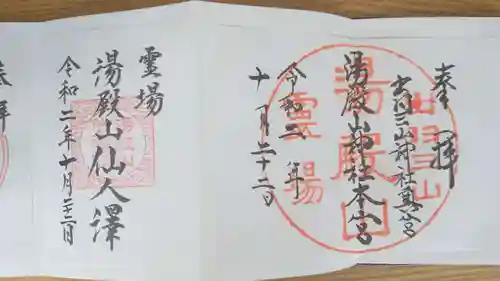 奉拝
出羽三山神社奥宮
湯殿山神社本宮
令和二年
十月二十二日
湯殿山
霊場
霊場
湯殿山仙人澤
令和二年十月二十二日
奉拝